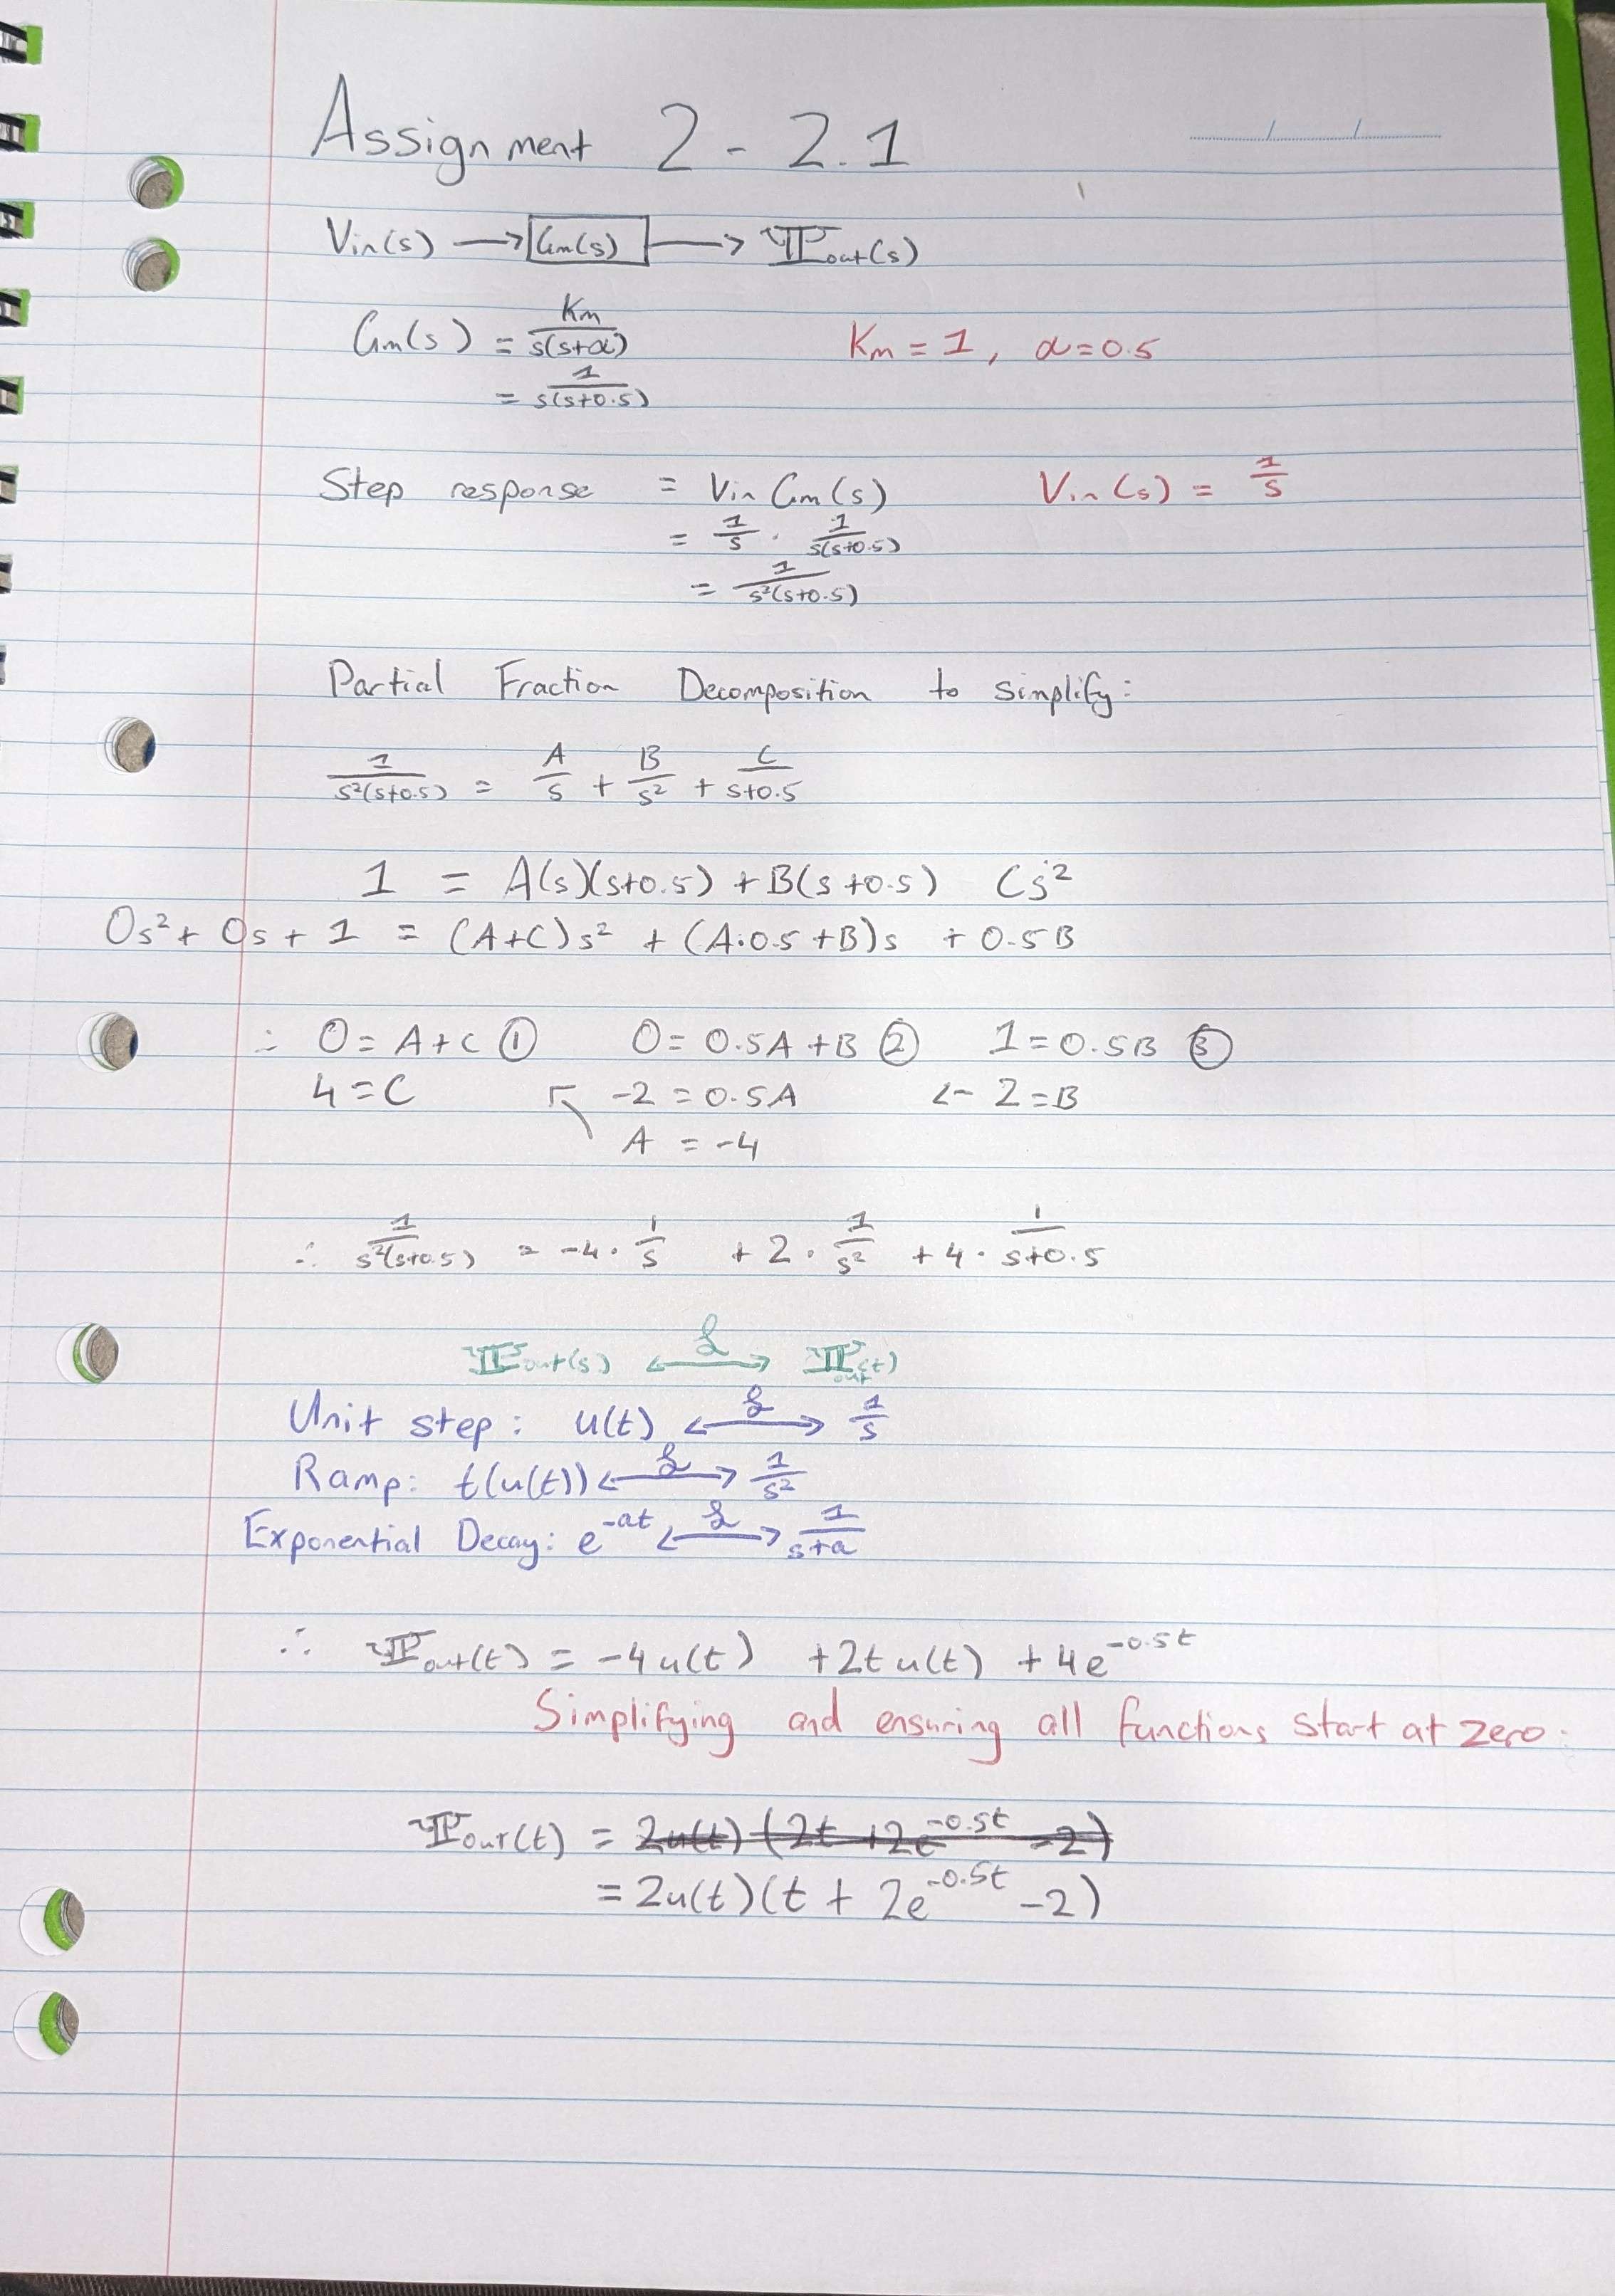 Assignment 2 - 2.1
Vin(s) → Gm(s) → Ψout(s)
Gm(s) = Km / s(s+α)    Km = 1, α = 0.5
= 1 / s(s+0.5)
Step response = Vin Gm(s)    Vin(s) = 1/s
= 1/s · 1/s(s+0.5)
= 1 / s²(s+0.5)
Partial Fraction Decomposition to simplify:
1/s²(s+0.5) = A/s + B/s² + C/s+0.5
1 = A(s)(s+0.5) + B(s+0.5) Cs²
0s² + 0s + 1 = (A+C)s² + (A·0.5+B)s + 0.5B
∴ 0 = A+C ① 0 = 0.5A+B ② 1 = 0.5B ③
4 = C ↖ -2 = 0.5A ← 2 = B
A = -4
∴ 1/s²(s+0.5) = -4 · 1/s + 2 · 1/s² + 4 · 1/s+0.5
Ψout(s) ⟷ℒ Ψout(t)
Unit step: u(t) ⟷ℒ 1/s
Ramp: t(u(t)) ⟷ℒ 1/s²
Exponential Decay: e^-at ⟷ℒ 1/s+a
∴ Ψout(t) = -4u(t) + 2tu(t) + 4e^-0.5t
Simplifying and ensuring all functions start at zero:
Ψout(t) = 2u(t)(2t + 2e^-0.5t - 2)
= 2u(t)(t + 2e^-0.5t - 2)